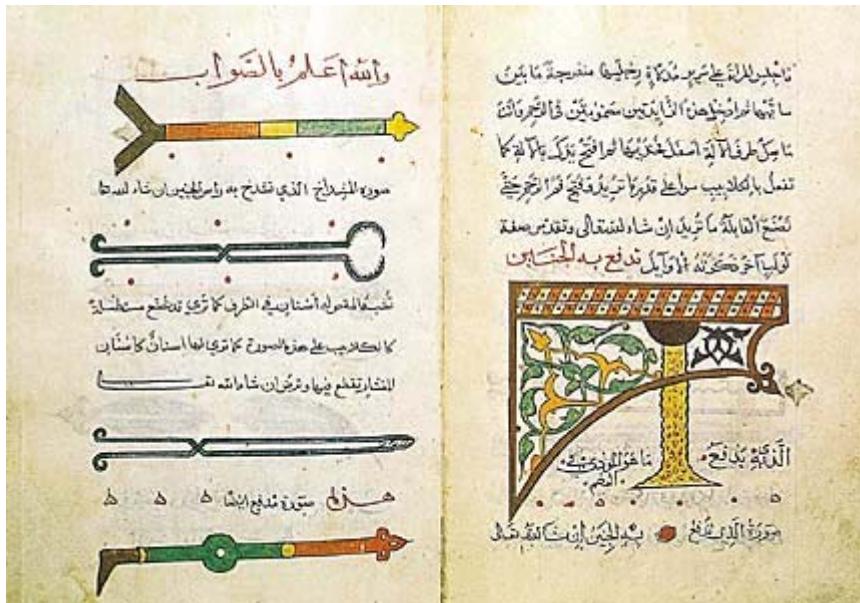 المراة على سرير مدلاة رجليها منفرجة ما بين
ساقيها ثم ادخل هذه الزايدتين في الرحم وانت
ماسك طرف الالة اسفل ثم افتح يدك بالالة كما
تفعل بالكلاليب سوا على قدر ما تريد فتح فم الرحم حتى
تصنع القابلة ما تريد ان شاء الله تعالى صفة
لولب آخر ذكرته الاوايل تدفع به الجنين
الذي يدفع ما هو
صورة الذي يدفع به الجنين ان شاء الله تعالى
والله اعلم بالصواب
صورة المشداخ الذي تشدخ به راس الجنين ان شاء الله
اسنان في الطرف كما ترى
كالكلاليب على هذه الصورة كما ترى لها اسنان كاسنان
المنشار تقطع بها وترض ان شاء الله
هذه صورة مدفع ايضا